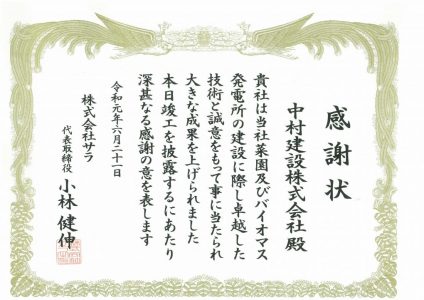 感謝状
中村建設株式会社 殿
貴社は当社菜園及びバイオマス
発電所の建設に際し卓越した
技術と誠意をもって事に当たられ
大きな成果を上げられました
本日竣工を披露するにあたり
深甚なる感謝の意を表します
令和元年六月二十一日
株式会社サラ
代表取締役 小林 健伸